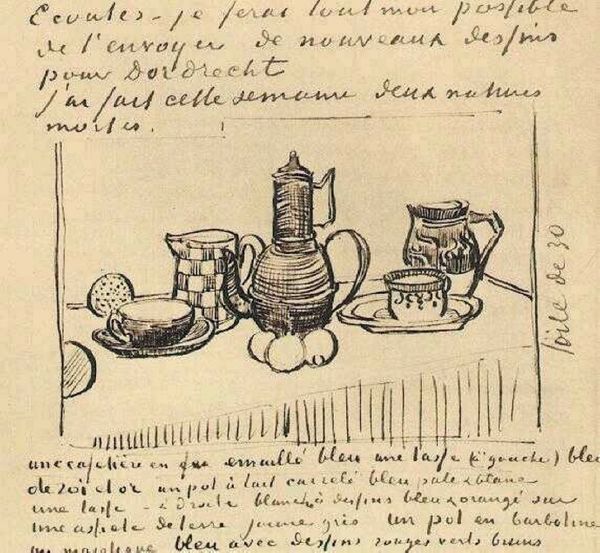 Ecoutes - je ferai tout mon possible
de t'envoyer de nouveaux dessins
pour Dordrecht
J'ai fait cette semaine deux natures
mortes.
toile de 30
une cafetière en fer emaillé bleu une tasse (à gauche) bleu
de roi et or un pot à lait carrelé bleu pale & blanc
une tasse - à droite blanche à dessins bleu & orangé sur
une assiette de terre jaune gris un pot en barbotine
ou majolique bleu avec dessins rouges verts bruns